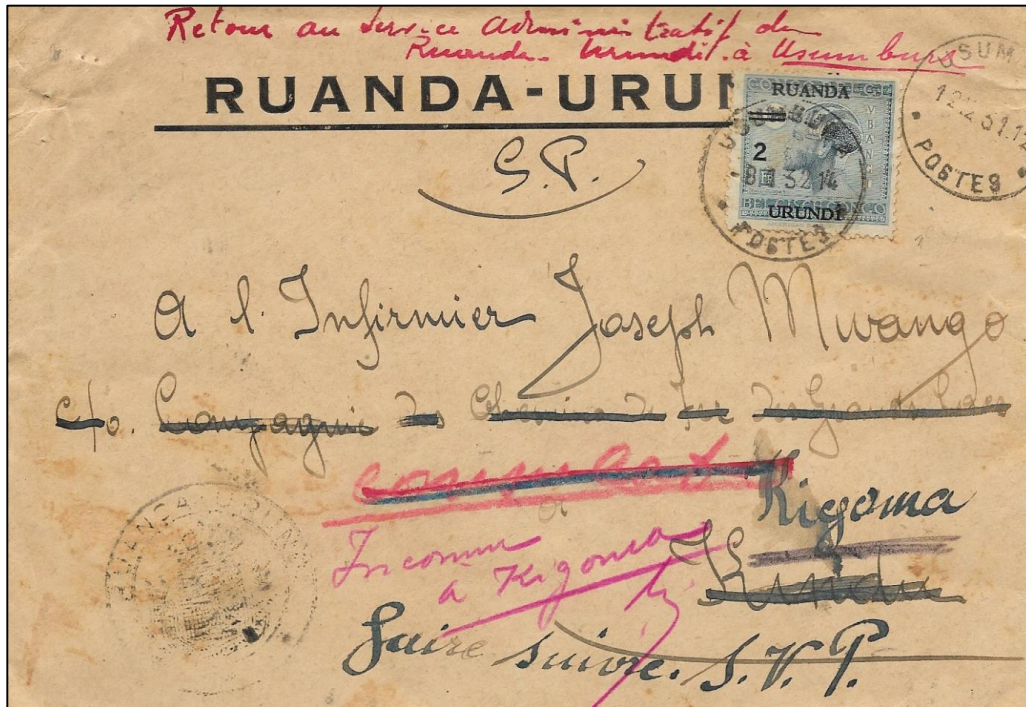 Retour au Service Administratif du
Ruanda-Urundi à Usumbura
RUANDA-URUN
S.P.
RUANDA
2
URUNDI
BELGISCH CONGO
USUMBURA
8 1 32.14
POSTES
USUM
12.12.31.12
POSTES
A l. Infirmier Joseph Mwango
c/o. Compagnie des Chemins de fer des Grands Lacs
à
Kigoma
Kindu
Inconnu
à Kigoma
faire suivre. S.V.P.